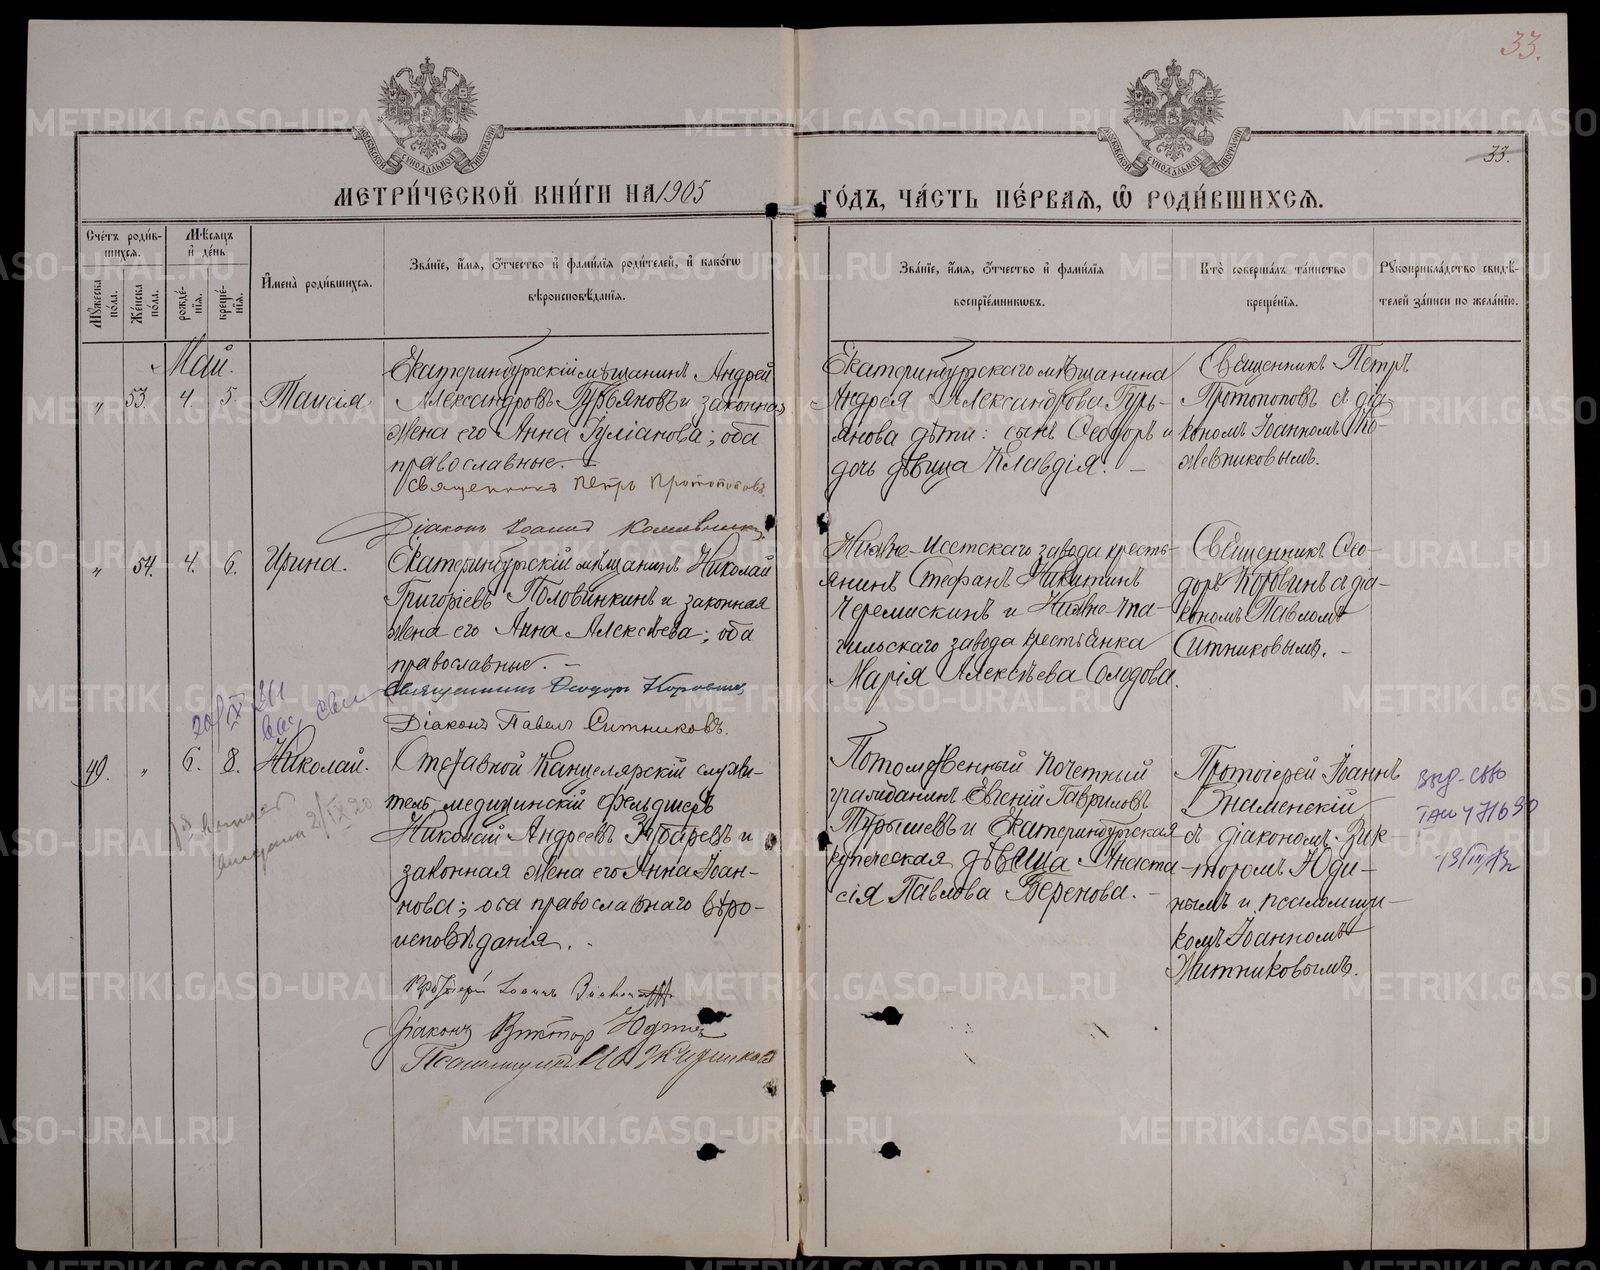 33.
33.
МЕТРИ́ЧЕСКОЙ КНИ́ГИ НА 1905 ГО́ДЪ, ЧА́СТЬ ПЕ́РВАЯ, Ѽ РОДИ́ВШИХСЯ.
Сче́тъ роди́в-
шихся.
Мꙋ́жеска по́ла.
Же́нска по́ла.
Мѣ́сяцъ и҆ де́нь
рожде́-
нїя.
креще́-
нїя.
И҆мена̀ роди́вшихся.
Зва́нїе, и҆́мя, ѻ҆́тчество и҆ фами́лїя роди́телей, и҆ како́гѡ
вѣроисповѣ́данїя.
Зва́нїе, и҆́мя, ѻ҆́тчество и҆ фами́лїя
воспрїе́мникѡвъ.
Кто̀ соверша́лъ та́инство
креще́нїя.
Рꙋкоприкла́дство свидѣ́-
телей за́писи по жела́нїю.
Май.
„ 53. 4. 5. Таисія
Екатеринбургскій мѣщанинъ Андрей
Александровъ Гурьяновъ и законная
жена его Анна Гуліанова; оба
православные. —
Священникъ Петръ Протопоповъ
Діаконъ Іоаннъ Кожевниковъ
Екатеринбургскаго мѣщанина
Андрея Александрова Гурь-
янова дѣти: сынъ Ѳеодоръ и
дочь дѣвица Клавдія. —
Священникъ Петръ
Протопоповъ съ діа-
кономъ Іоанномъ Ко-
жевниковымъ.
„ 54. 4. 6. Ирина.
Екатеринбургскій мѣщанинъ Николай
Григоріевъ Половинкинъ и законная
жена его Анна Алексѣева; оба
православные. —
Священникъ Ѳеодоръ Коровинъ
Діаконъ Павелъ Ситниковъ.
Нижне-Исетскаго завода кресть-
янинъ Стефанъ Никитинъ
Черемискинъ и Нижне-Та-
гильскаго завода крестьянка
Марія Алексѣева Солодова.
Священникъ Ѳео-
доръ Коровинъ съ діа-
кономъ Павломъ
Ситниковымъ. —
49. „ 6. 8. Николай.
Отставной канцелярскій служи-
тель, медицинскій фельдшеръ
Николай Андреевъ Зубаревъ и
законная жена его Анна Іоан-
нова; оба православнаго вѣро-
исповѣданія. -
Протоіерей Іоаннъ Знаменскій
Діаконъ Викторъ Юдинъ
Потомственный почетный
гражданинъ Евгеній Гавриловъ
Турышевъ и Екатеринбургская
купеческая дѣвица Анаста-
сія Павлова Беренова. —
Протоіерей Іоаннъ
Знаменскій
съ діакономъ Вик-
торомъ Юди-
нымъ и псаломщи-
комъ Іоанномъ
Житниковымъ.
METRIKI.GASO-URAL.RU